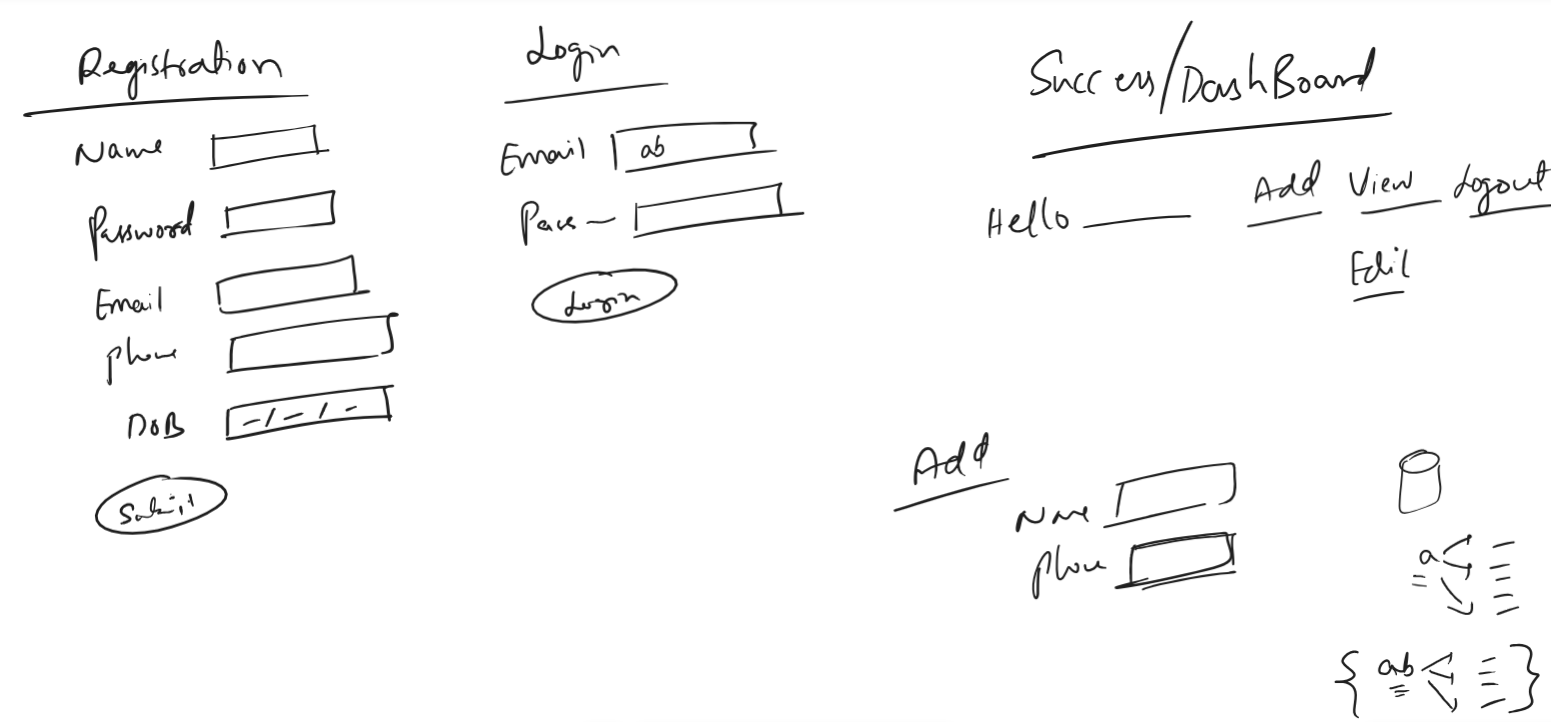 Registration
Name
Password
Email
Phone
DOB -/-/-
Submit
Login
Email ab
Pass
Login
Success/DashBoard
Hello
Add View Logout
Edit
Add
Name
Phone
a
{ ab }